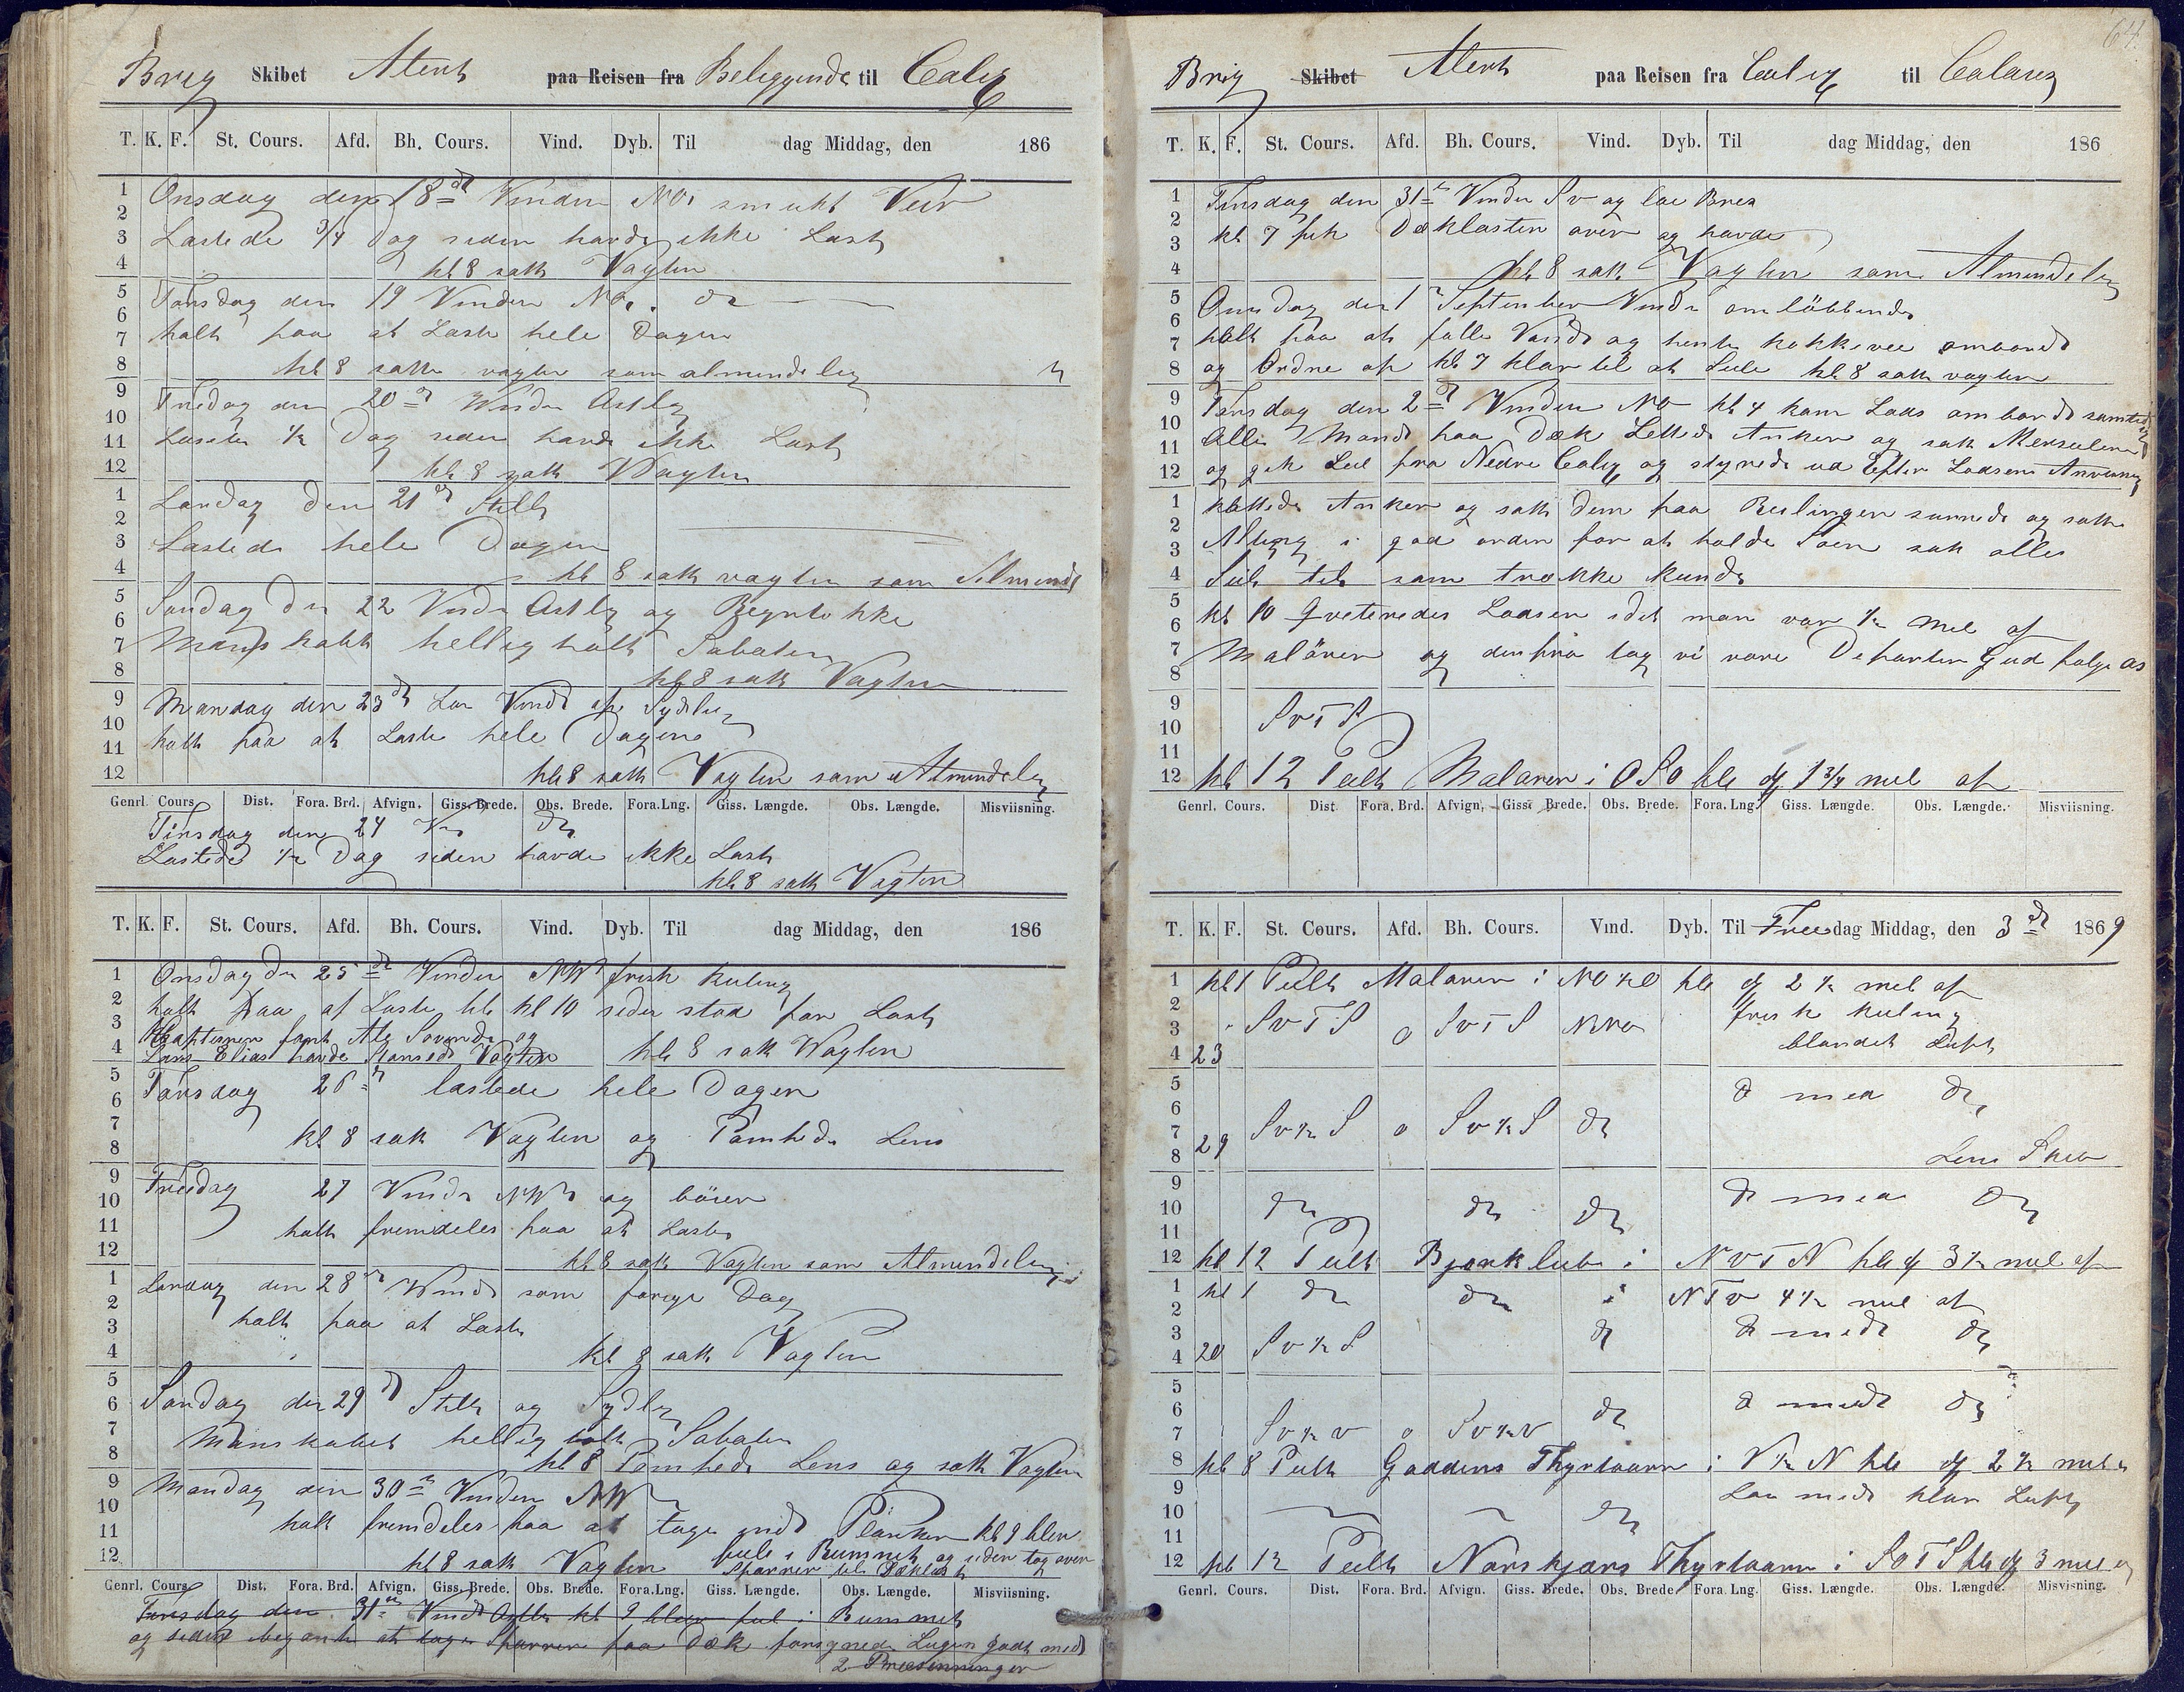 Brig Skibet Alert paa Reisen fra Beliggende til Calix
T. K. F. St. Cours. Afd. Bh. Cours. Vind. Dyb. Til dag Middag, den 186
1 Onsdag den 18de Vinden NO smukt Veir
2
3 Lastede 3/4 Dag siden havde ikke Last
4 kl 8 satt Vagten
5 Torsdag den 19 Vinden NO. do
6
7 holt paa at Laste hele Dagen
8 kl 8 satte vagten som almindelig
9 Fredag den 20de Vinden Astlig
10
11 Lastede 1/2 Dag siden havde ikke Last
12 kl 8 satt Vagten
1 Lørdag den 21de Stille
2
3 Lastede hele Dagen
4 kl 8 satt vagten som Almind
5 Søndag den 22 Vinden Astlig og
6
7 Manskabet helligholt Sabaten
8 kl 8 satt Vagten
9 Mandag den 23de Lau Vind af Sydlig
10
11 holt paa at Laste hele Dagen
12 kl 8 satt Vagten som Almindelig
Genrl. Cours. Dist. Fora. Brd. Afvign. Giss. Brede. Obs. Brede. Fora. Lng. Giss. Længde. Obs. Længde. Misviisning.
Tirsdag den 24 do
Lastede 1/2 Dag siden havde ikke Last
kl 8 satt Vagten
T. K. F. St. Cours. Afd. Bh. Cours. Vind. Dyb. Til dag Middag, den 186
1 Onsdag den 25de Vinden NW frisk Kuling
2 holt paa at Laste til kl 10 siden stod for Last
3 Kapteinen og
4 Elias havde Vagten kl 8 satt Vagten
5 Torsdag 26de lastede hele Dagen
6
7 kl 8 satt Vagten og Pomhede Lens
8
9 Freedag 27 Vinden NW og böier
10
11 holt fremdeles paa at Laste
12 kl 8 satt Vagten som Almindelig
1 Lørdag den 28de Vind som forige Dag
2
3 holt paa at Laste
4 kl 8 satt Vagten
5
6 Søndag den 29de Stille og Sydlig
7 Manskabet hellig holt Sabaten
8 kl 8 Pomhede Lens og satt Vagten
9 Mandag den 30te Vinden NW
10
11 holt fremdeles paa at tage ind Planker kl 9 blev
fule i Rummet og siden tog over
12 kl 8 satt Vagten Sparrer til Dækslast
Genrl. Cours. Dist. Fora. Brd. Afvign. Giss. Brede. Obs. Brede. Fora. Lng. Giss. Længde. Obs. Længde. Misviisning.
Tirsdag den 31te Vind kl 9 blev ful i Rummet
og siden begynte at tage Sparrer paa Dæk forsynede Lugen godt med
2 Presenninger
64.
Brig Skibet Alert paa Reisen fra Calix til Calais
T. K. F. St. Cours. Afd. Bh. Cours. Vind. Dyb. Til dag Middag, den 186
1 Tirsdag den 31te Vinden Sv og lae Bris
2
3 kl 7 fik Dæklasten over og
4 kl 8 satt Vagten som Almindelig
5 Onsdag den 1 September Vinden omløbbende
6
7 holt paa at fulle Vand og hente
8 og Ordne op kl 7 klar til at Seile kl 8 satt vagten
9 Torsdag den 2de Vinden NO kl 4 kom Lods ombord samtidig
10
11 Alle Mand paa Dæk Lettede Anker og satt Merseilene
12 og gik Seil fra Nedre Calix og styrede ud Efter Lodsens Anvisning
1 kattede Anker og satt dem paa Reilingen surrede og satte
2
3 Alting i god orden for at holde Søen satt alle
4 Seil til som trække kunde
5
6 kl 10 Qviteredes Lodsen idet man var 1/2 Mil af
7 Malören og derfra tog vi vore Departen Gud følge os
8
9
10 SvTS
11
12 kl 12 Peilt Malören i OSO til 1 3/4 mil af
Genrl. Cours. Dist. Fora. Brd. Afvign. Giss. Brede. Obs. Brede. Fora. Lng. Giss. Længde. Obs. Længde. Misviisning.
T. K. F. St. Cours. Afd. Bh. Cours. Vind. Dyb. Til Freedag Middag, den 3de 1869
1 kl 1 Peilt Malören i NO 1/2 O til 2 1/2 mil af
2 frisk Kuling
3 SvTS o SvTS NNO
4 23 blandet Luft
5
6 do med do
7 Sv 1/2 S o Sv 1/2 S do
8 29 Lens Skib
9
10 do do do do med do
11
12 kl 12 Peilt Bjørklub i NvTN til 3 1/2 mil af
1 kl 1 do do i NTv 4 1/2 mil af
2
3 Sv 1/2 S do do med do
4 20
5
6 do do med do
7 Sv 1/2 v o Sv 1/2 v
8 kl 8 Peilt Gaddens Fhyrtaarn i V 1/2 N til 2 1/2 mil
9 Lau med klar Luft
10 do
11
12 kl 12 Peilt Norskjærs Fhyrtaarn i SOTS til 3 mil
Genrl. Cours. Dist. Fora. Brd. Afvign. Giss. Brede. Obs. Brede. Fora. Lng. Giss. Længde. Obs. Længde. Misvisning.